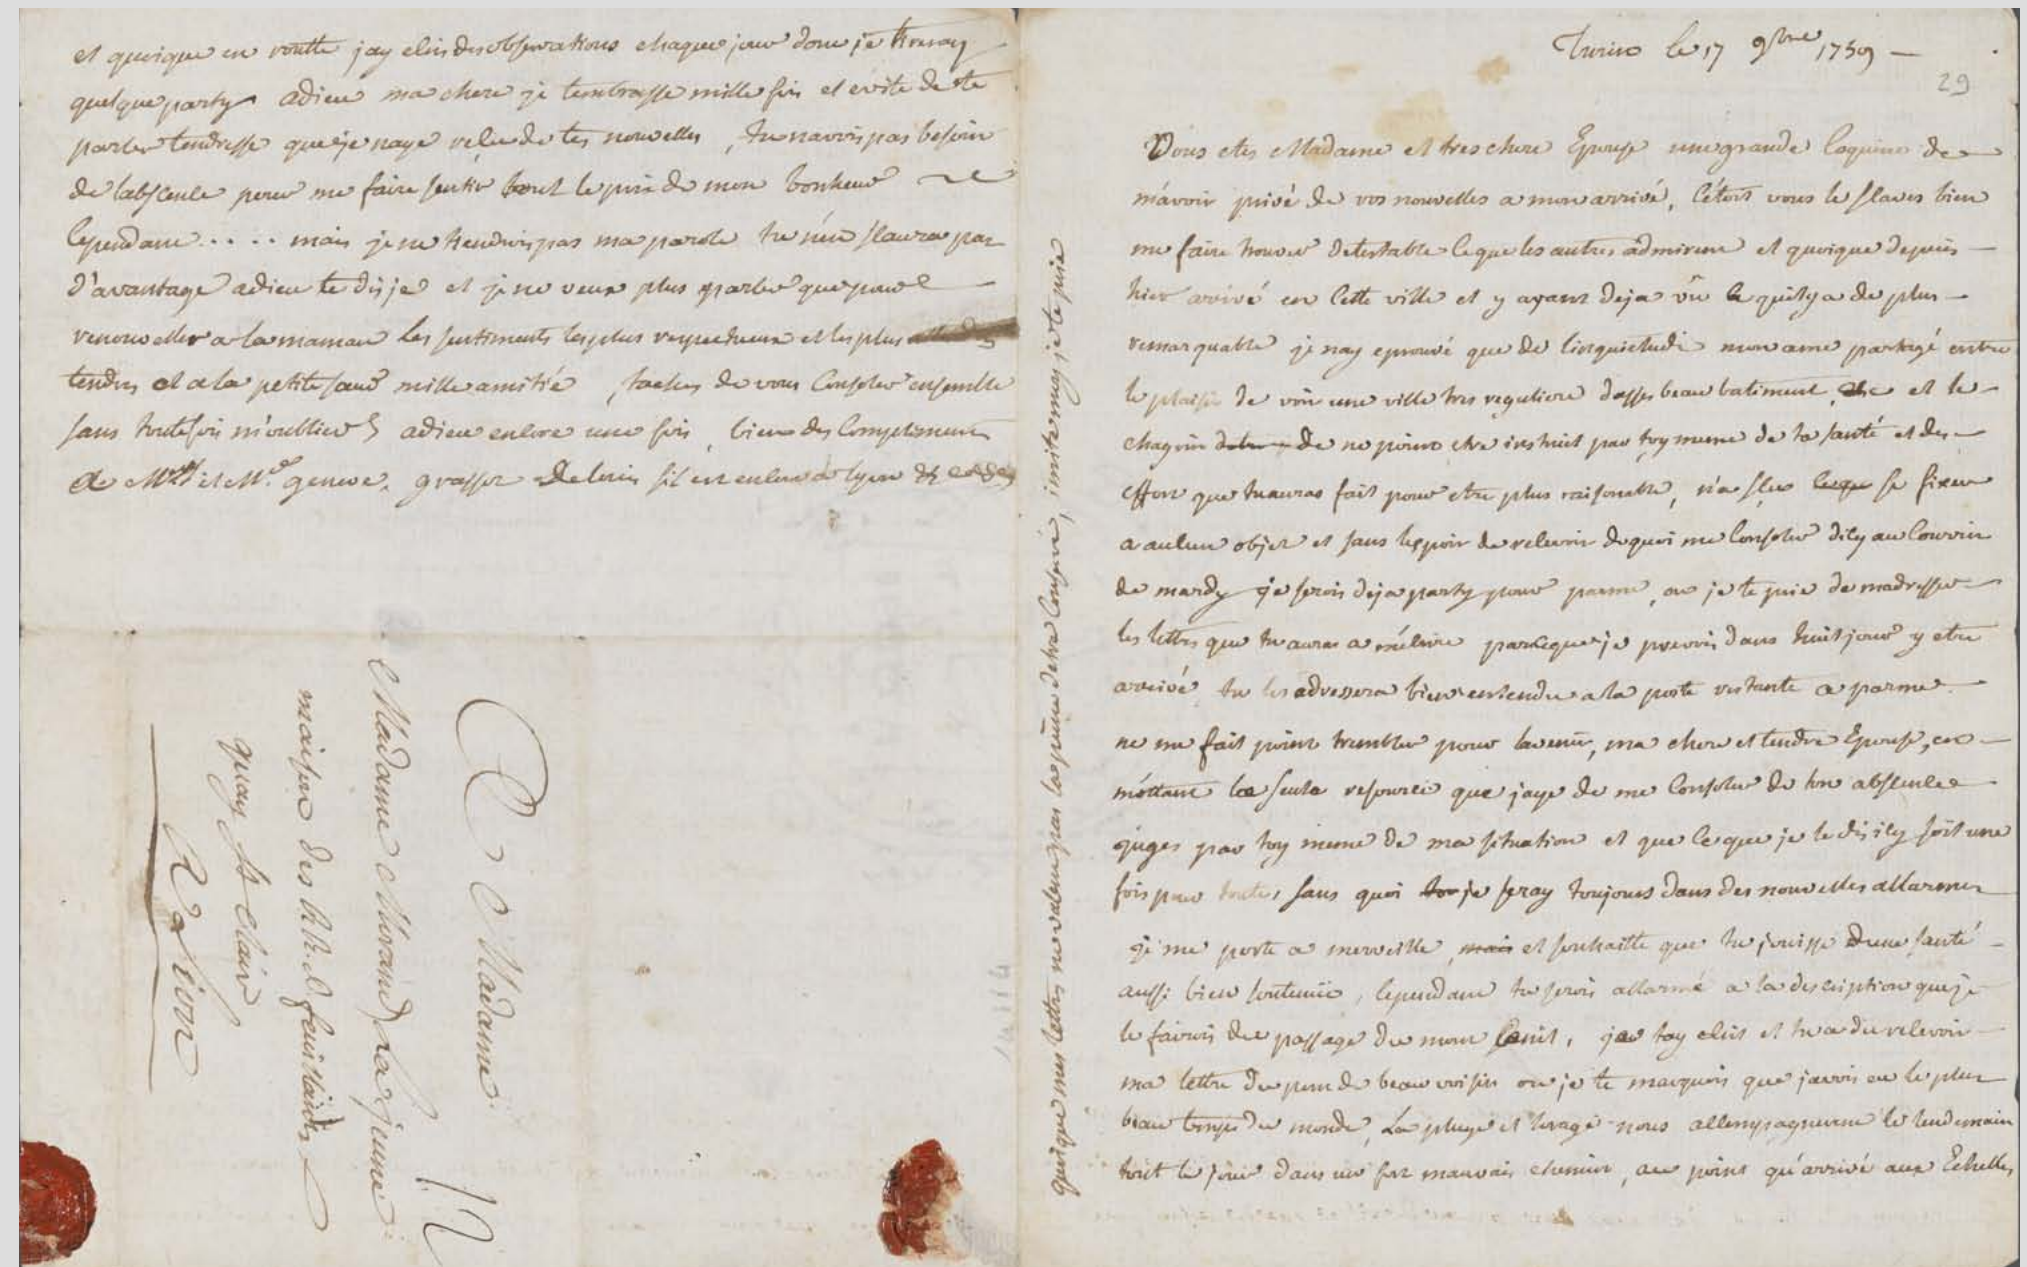 et quoique en routte jay ecris des observations chaque jour donc je tireray
quelque party adieu ma chere je tembrasse mille fois et evite de te
parler tendresse que je naye reçu de tes nouvelles, tu navois pas besoin
de labscence pour me faire sentir tout le prix de mon bonheur
Cependant..... mais je ne tiendrois pas ma parole tu n'en sçaura pas
d'avantage adieu te dis je et je ne veux plus parler que pour
renouveller a la maman les sentiments les plus respectueux et les plus
tendres et a la petite sœur mille amitié, taches de vous consoler ensemble
sans toutefois m'oublier adieu encore une fois, bien des Compliments
a Mrs et Me geneve, grassot Deloris s'il est encore a lyon
A Madame
Madame Morand La jeune
maison des R.R.d. feuillands
quay St Clair
A Lion
12
quoique mes lettres ne valent pas la peine detre conservé, imite moy je te prie
Turin le 17 9bre 1759
29
Vous etes Madame et tres chere Epouse une grande Coquine de
m'avoir privé de vos nouvelles a mon arrivé, C'étoit vous le sçaves bien
me faire trouver detestable ce que les autres admirent et quoique depuis
hier arrivé en Cette ville et y ayant deja vû ce quil y a de plus
remarquable je nay eprouvé que de linquietude mon ame partagé entre
le plaisir de voir une ville tres reguliere dasses beau batiment, et le
chagrin de ne point etre instruit par toy meme de ta santé et des
effort que tu auras fait pour etre plus raisonable, n'a sçu se fixer
a aucun objet et sans lespoir de recevoir de quoi me Consoler d'icy au Courrier
de mardy je serois deja party pour parme, ou je te prie de madresser
les lettres que tu auras a mécrire parceque je pourrois dans huit jour y etre
arrivé tu les adressera bien entendu a la poste restante a parme.
ne me fait point trembler pour lavenir, ma chere et tendre Epouse, en
m'ottant la seule resource que jaye de me Consoler de ton abscence
juges par toy meme de ma situation et que ce que je te dis icy soit une
fois pour toutes, sans quoi je seray toujours dans des nouvelles allarmes
je me porte a merveille, mais et souhaitte que tu jouisse dune santé
aussi bien soutenüe, Cependant tu serois allarmé a la description que je
te fairois du passage du mont Cenis, je tay ecrit et tu a du recevoir
ma lettre du pont de beauvoisin ou je te marquois que javois eu le plus
beau temps du monde, La pluye et lorage nous accompagnerent le lendemain
tout le jour dans un fort mauvais chemin, au point qu'arrivé aux Echelles